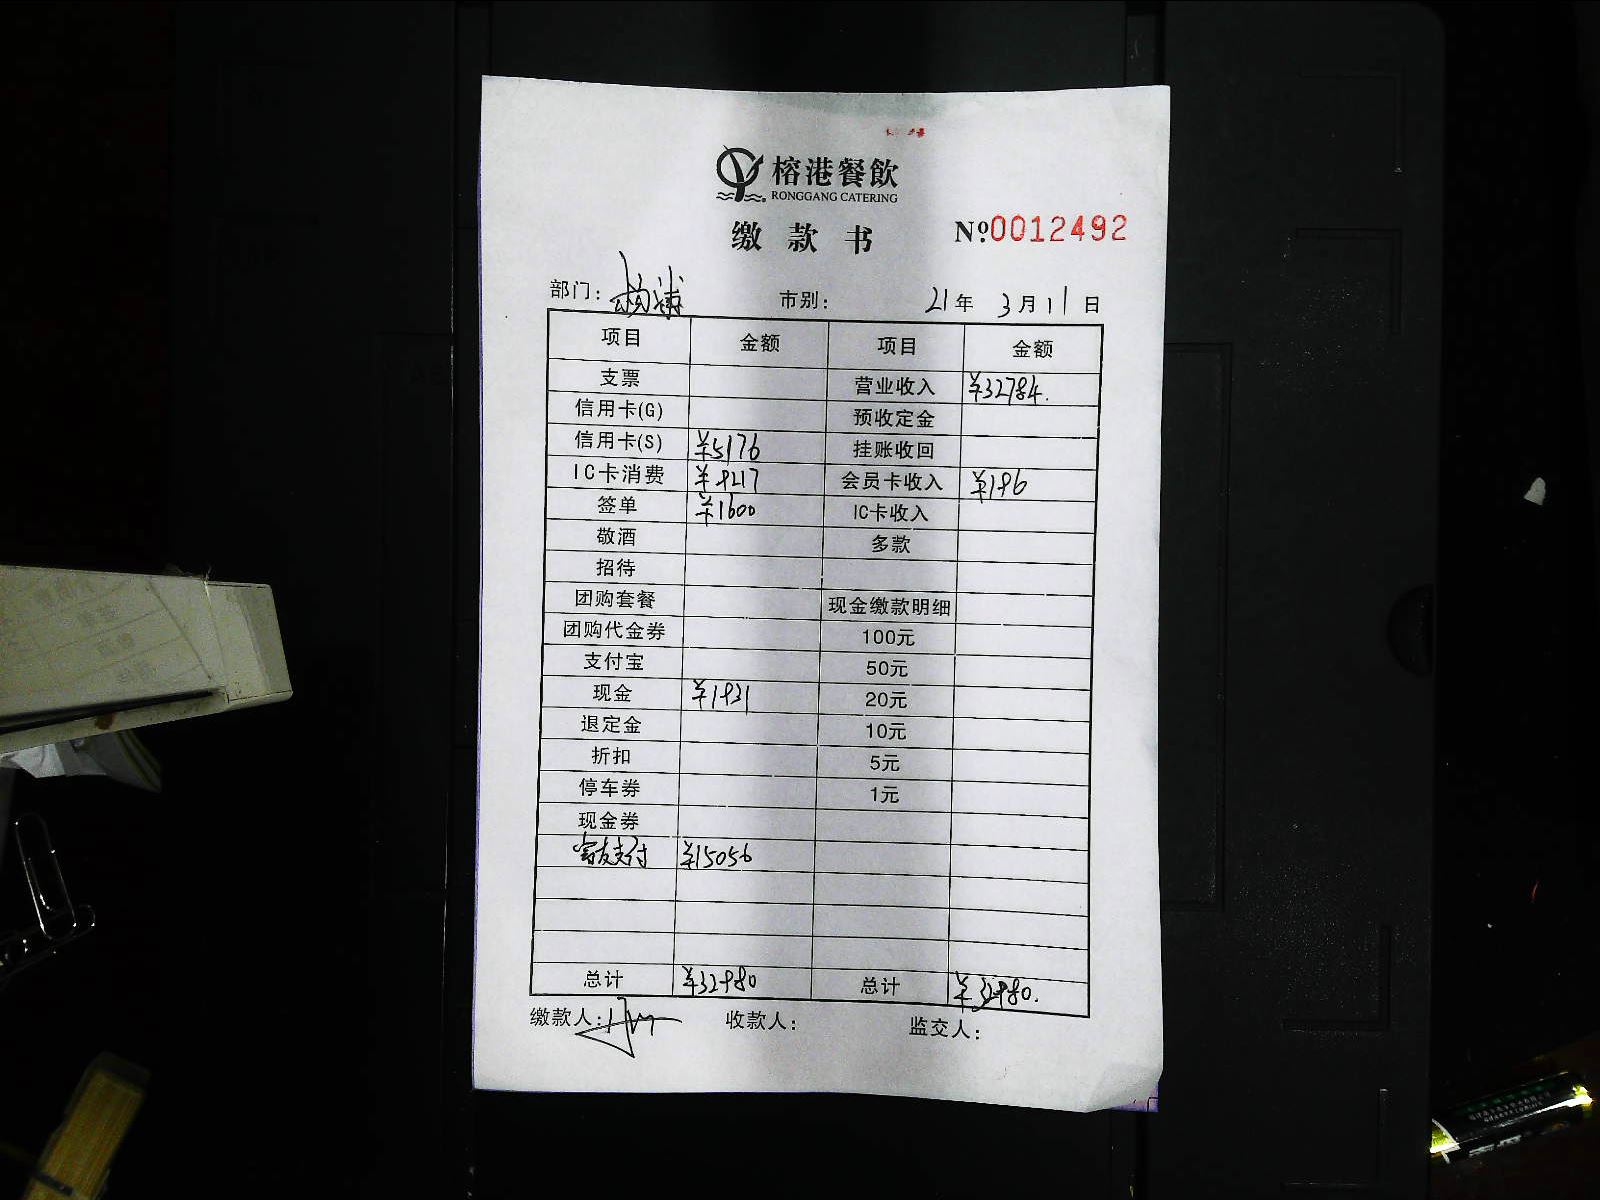 榕港餐飲
RONGGANG CATERING
缴款书 Nº0012492
部门：杨浦 市别： 21年 3月11日
项目 金额 项目 金额
支票 营业收入 ¥32784.
信用卡(G) 预收定金
信用卡(S) ¥5176 挂账收回
IC卡消费 ¥9217 会员卡收入 ¥196
签单 ¥1600 IC卡收入
敬酒 多款
招待
团购套餐 现金缴款明细
团购代金券 100元
支付宝 50元
现金 ¥1931 20元
退定金 10元
折扣 5元
停车券 1元
现金券
富友支付 ¥15056
总计 ¥32980 总计 ¥32980.
缴款人： 收款人： 监交人：